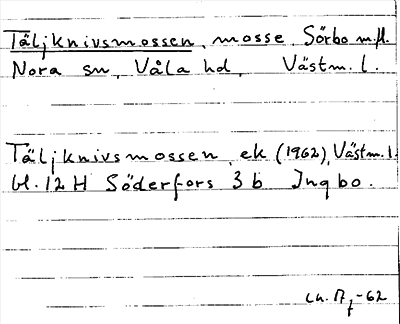 Täljknivsmossen, mosse, Sörbo m.fl.
Nora sn, Våla hd, Västm. l.
Täljknivsmossen, ek (1962), Västm. l.
bl. 12 H Söderfors 3 b Ingbo.
-62